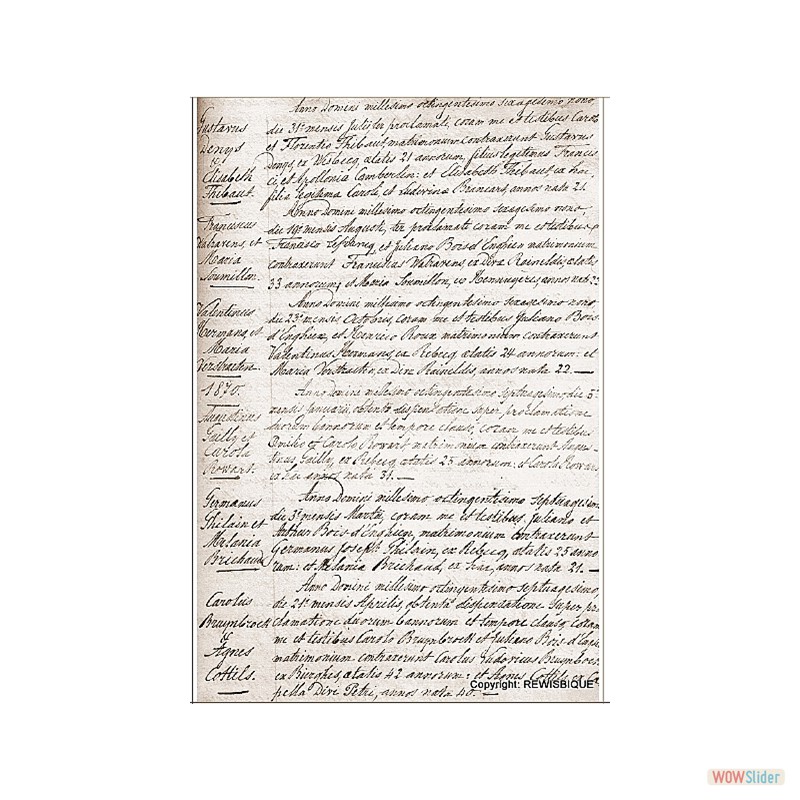 Gustavus
Denys
&
Elisabeth
Thibaut.
Anno Domini millesimo octingentesimo sexagesimo nono,
die 31ª mensis Julii ter proclamati, coram me et testibus Carolo
et Florentio Thibaut matrimonium contraxerunt Gustavus
Denys, ex Wisbecq, ætatis 21 annorum, filius legitimus Francis
ci, et Apollonia Camberlin: et Elisabeth Thibaut ex hac,
filia legitima Caroli, et Ludovica Brancart, annos nata 21.
Franciscus
Walravens, et
Maria
Soumillon.
Anno Domini millesimo octingentesimo sexagesimo nono,
die mensis Augusti, ter proclamati coram me et testibus
Francisco et Juliano Bois d'Enghien matrimonium
contraxerunt Franciscus Walravens, ex Dive Raineldis, ætatis
33 annorum; et Maria Soumillon, ex Hennuyeres, annos nata
Valentinus
Hermans, et
Maria
Verstraeten.
Anno Domini millesimo octingentesimo sexagesimo nono
die 23ª mensis Octobris, coram me et testibus Juliano Bois
d'Enghien, et Henrico Roux matrimonium contraxerunt
Valentinus Hermans, ex Rebecq, ætatis 24 annorum: et
Maria Verstraeten, ex Dive Raineldis, annos nata 22.
1870.
Augustinus
Gailly et
Carola
Rowart.
Anno Domini millesimo octingentesimo septuagesimo, die 5ª
mensis Januarii, obtenta dispensatione super proclamatione
duorum bannorum et tempore clauso, coram me et testibus
et Carolo Rowart, matrimonium contraxerunt Augus
tinus Gailly, ex Rebecq, ætatis 25 annorum: et Carola Rowart
ex hac annos nata 31.
Germanus
Ghilain et
Melania
Brichaud.
Anno Domini millesimo octingentesimo septuagesimo
die 3ª mensis Martii, coram me et testibus Juliano et
Arthur Bois d'Enghien, matrimonium contraxerunt
Germanus Joseph Ghilain, ex Rebecq, ætatis 25 anno
rum: et Melania Brichaud, ex hac, annos nata 21.
Carolus
Bruynbroeck
&
Agnes
Cottels.
Anno Domini millesimo octingentesimo septuagesimo,
die 21ª mensis Aprilis, obtenta dispensatione super pro
clamatione duorum bannorum et tempore clauso, coram
me et testibus Carolo Bruynbroeck et Juliano Bois d'Enghien
matrimonium contraxerunt Carolus Ludovicus Bruynbroeck
ex Bierghes, ætatis 42 annorum: et Agnes Cottels ex Ca
pella Divi Petri, annos nata 40.
Copyright: REWISBIQUE
WOWSlider